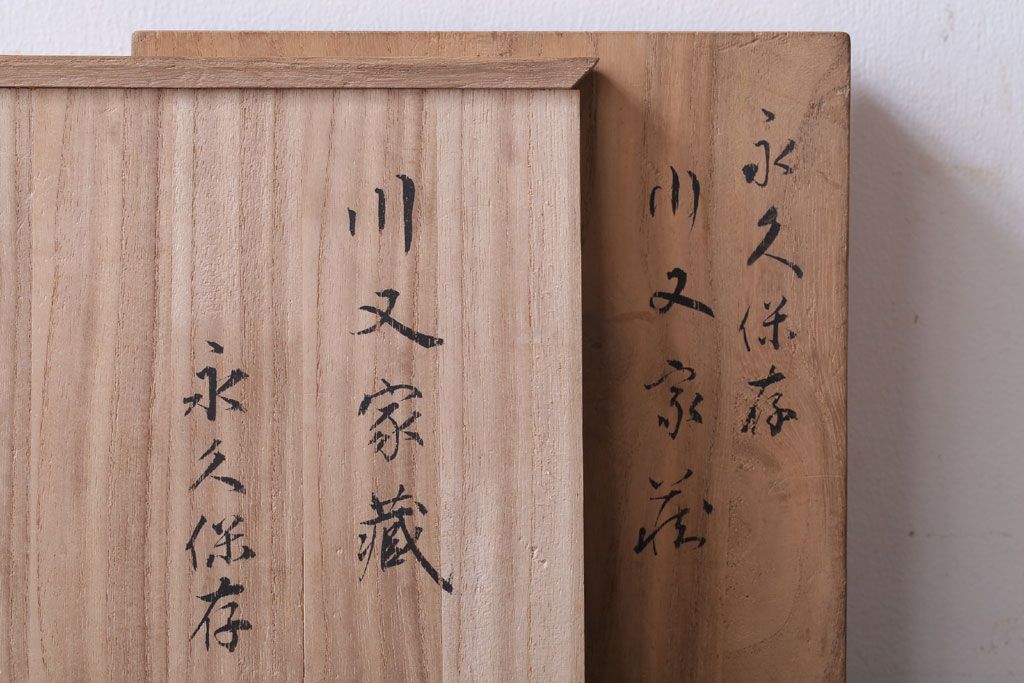 永久保存
川又家蔵
川又家藏
永久保存